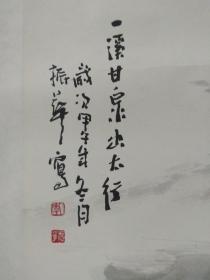 一溪甘泉出太行
岁次甲午年冬月
振华写